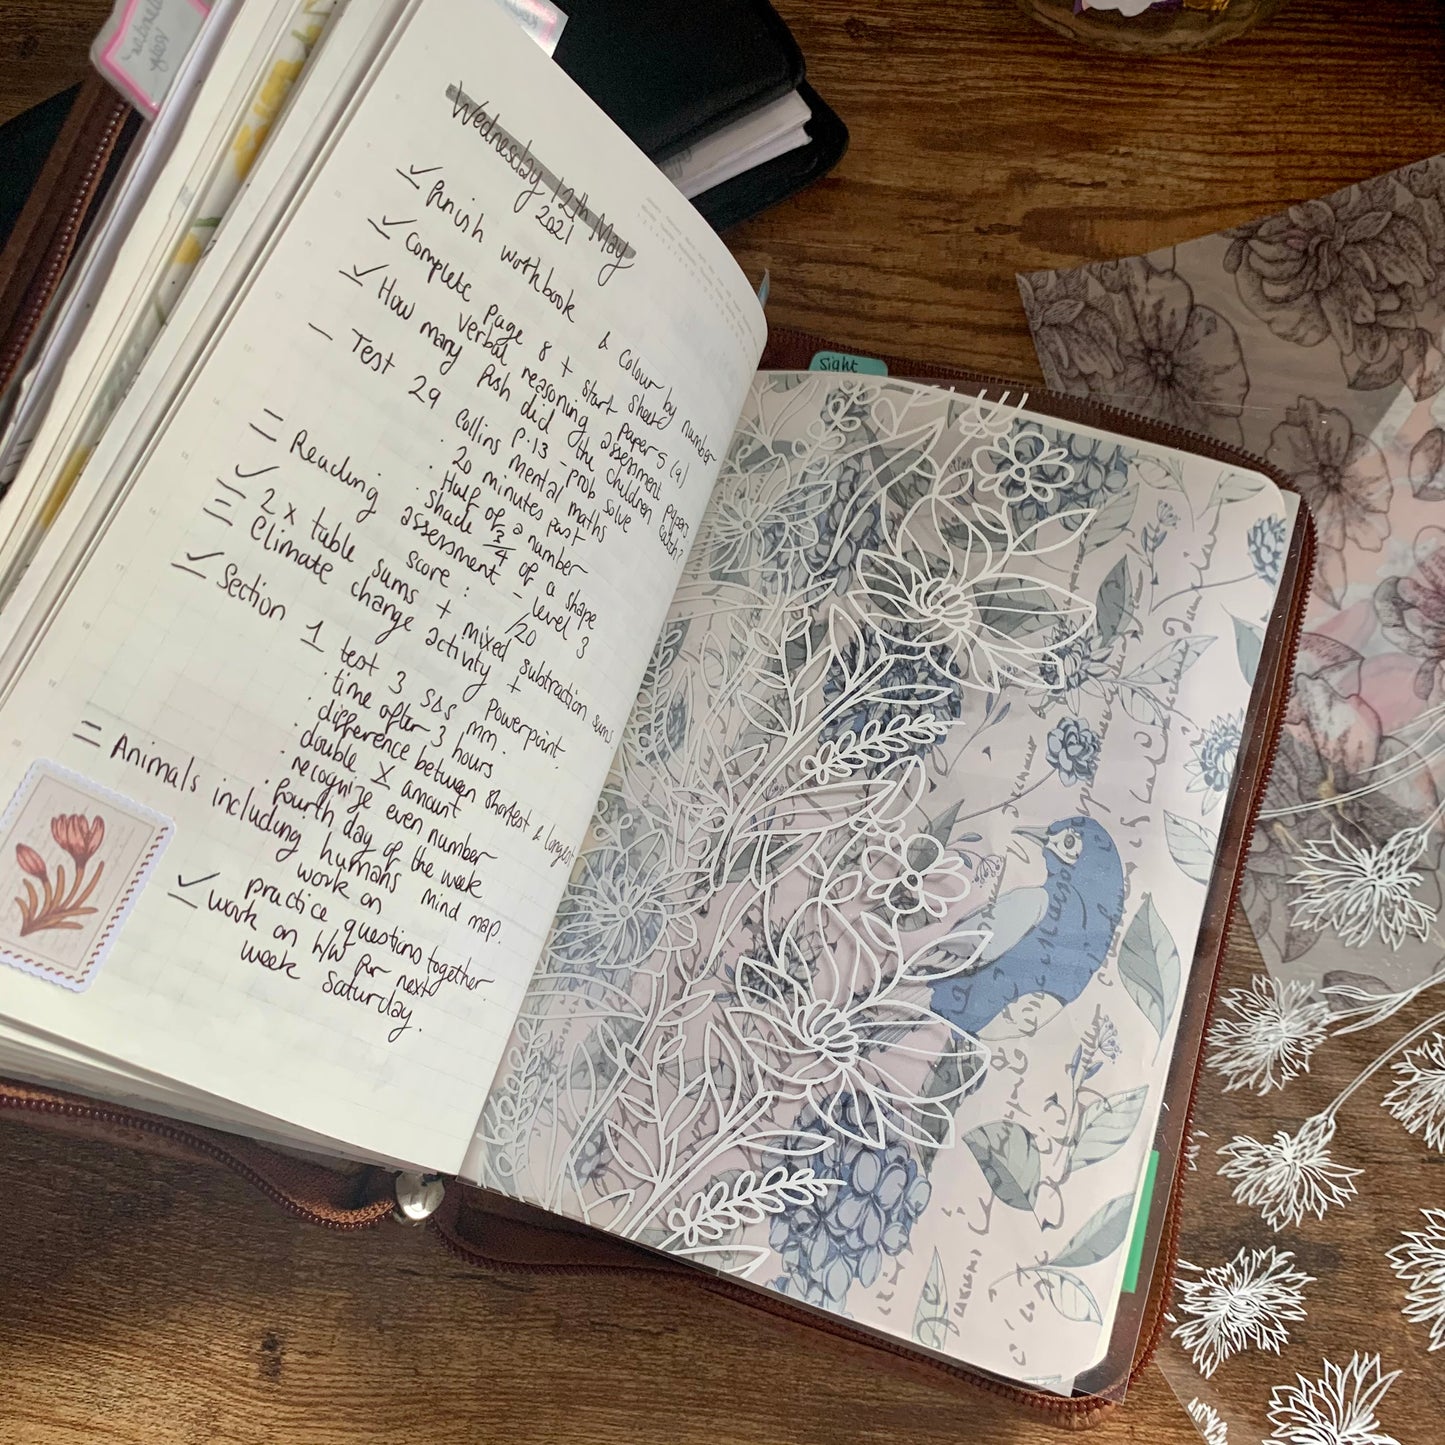 Wednesday 12th May
2021
Finish workbook & colour by number
Complete page 8 + start sheet
verbal reasoning papers (a)
assessment papers
How many fish did the children catch?
p.13 - prob solve
Test 29 Collins mental maths
· 20 minutes past
· Half of a number
· shade 3/4 of a shape
Reading assessment - level 3
score: /20
2 x table sums + mixed subtraction sums
Climate change activity + powerpoint.
Section 1 test 3 mm.
· time after 3 hours
· difference between shortest & longest
· double x amount
· recognize even number
· fourth day of the week
Animals including humans mind map.
work on
practice questions together.
work on H/W for next
week Saturday.
sight